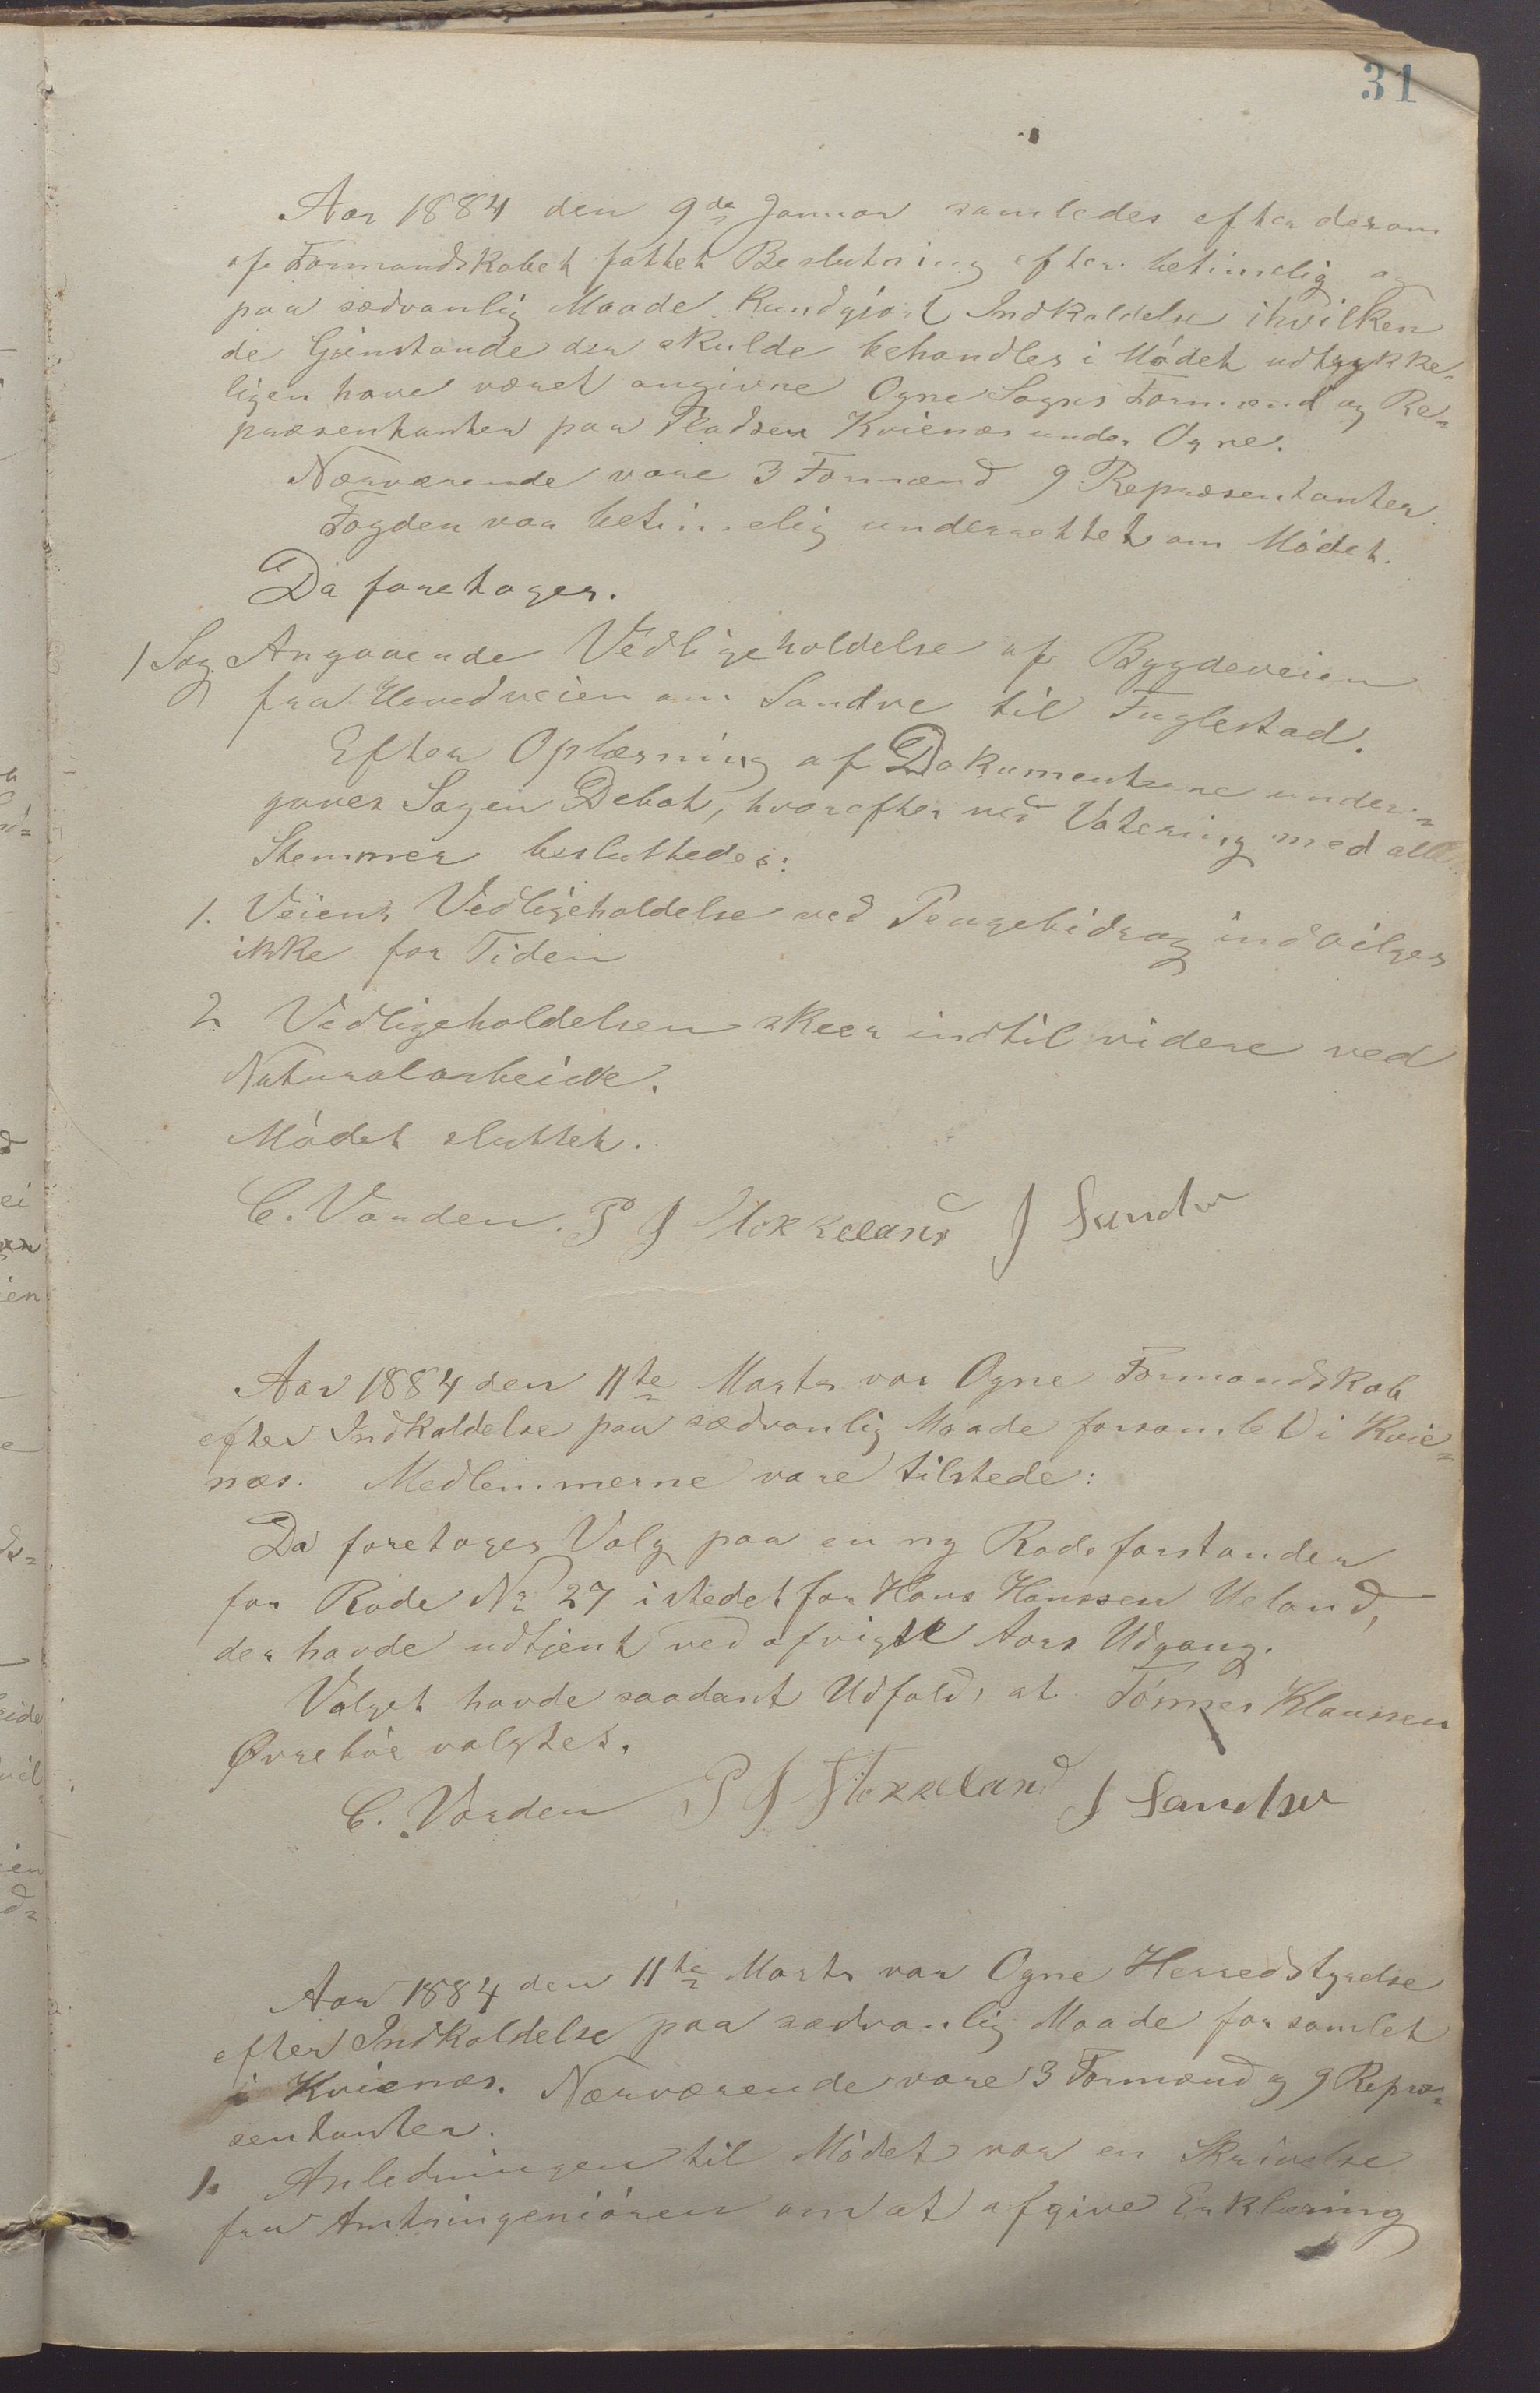 31
Aar 1884 den 9de Januar samledes efter derom
af Formandskabet fattet Beslutning efter betimelig og
paa sædvanlig Maade Kundgjort Indkaldelse ihvilken
de Gjenstande der skulde behandles i Mødet udtrykke-
ligen have været angivne Ogne Sogns Formænd og Re-
præsentanter paa Pladsen Kvienæs under Ogne.
Nærværende vare 3 Formænd 9 Repræsentanter.
Fogden var betimelig underrettet om Mødet.
Da foretoges.
1 Sag. Angaaende Vedligeholdelse af Bygdeveien
fra Hovedveien om Sandve til Fuglestad.
Efter Oplæsning af Dokumenterne under-
gaves Sagen Debat, hvorefter ved Votering med alle
Stemmer besluttedes:
1. Veiens Vedligeholdelse ved Pengebidrag indvilges
ikke for Tiden
2. Vedligeholdelsen skeer indtil videre ved
Naturalarbeide.
Mødet sluttet.
C. Varden. P J Stokkeland J Sandve
Aar 1884 den 11te Marts var Ogne Formandskab
efter Indkaldelse paa sædvanlig Maade forsamlet i Kvie-
næs. Medlemmerne vare tilstede:
Da foretoges Valg paa en ny Rodeforstander
for Rode No 27 istedet for Hans Hanssen Ueland,
der havde udtjent ved afvigte Aars Udgang.
Valget havde saadant Udfald, at Tønnes Klaussen
Øvrebøe valgtes.
C. Varden P J Stokkeland J Sandve
Aar 1884 den 11te Marts var Ogne Herredstyrelse
efter Indkaldelse paa sædvanlig Maade forsamlet
i Kvienæs. Nærværende vare 3 Formænd og 9 Repræ-
sentanter.
1. Anledningen til Mødet var en Skrivelse
fra Amtsingeniøren om at afgive Erklæring